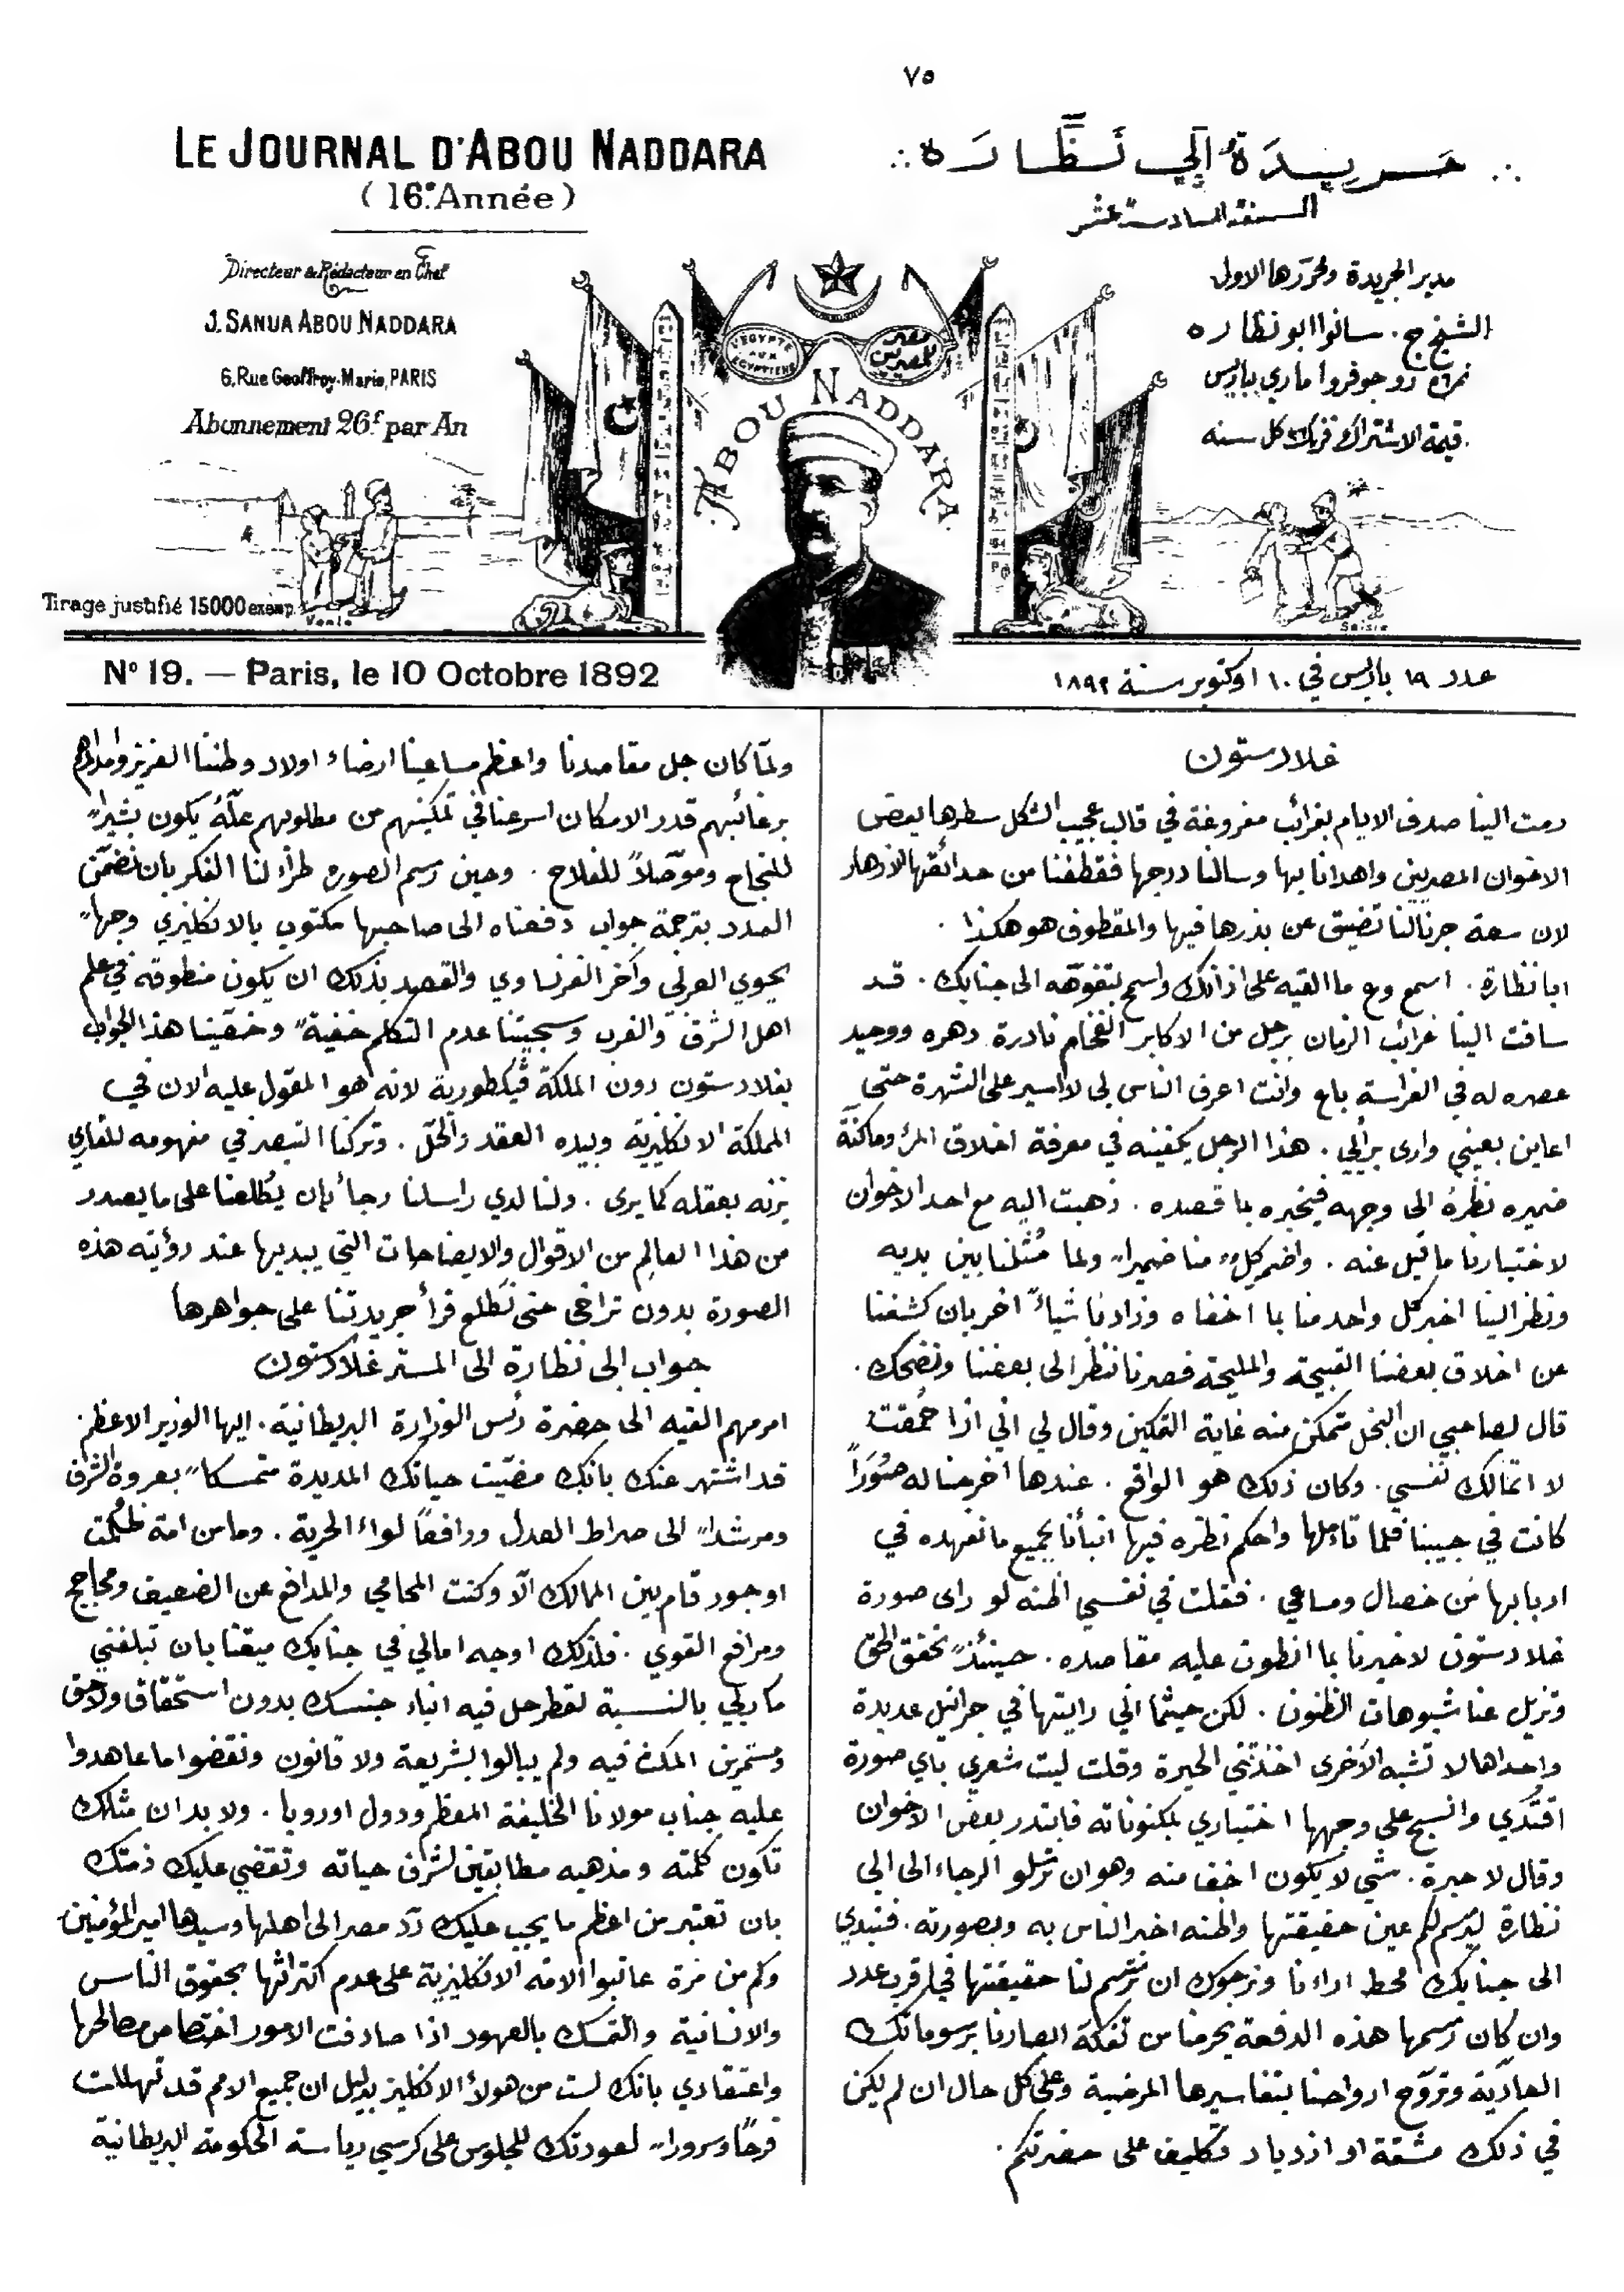 ٧٥
LE JOURNAL D'ABOU NADDARA
(16e Année)
Directeur & Rédacteur en Chef
J. SANUA ABOU NADDARA
6, Rue Geoffroy-Marie, PARIS
Abonnement 26f par An
Tirage justifié 15000 exemp.
Vente
جريدة ابي نظاره
السنة السادسة عشر
مدير الجريدة ومحررها الاول
الشيخ ج. سانوا ابو نظاره
نمرة ٦ رو جوفروا ماري بباريس
قيمة الاشتراك فرنك ٢٦ كل سنه
L'EGYPTE AUX EGYPTIENS
مصر للمصريين
ABOU NADDARA
Saisie
No 19. — Paris, le 10 Octobre 1892
عدد ١٩ باريس في ١٠ اوكتوبر سنة ١٨٩٢
غلادستون
رمت الينا صدف الايام بغرائب مفروغة في قالب عجيب الشكل سطرها بعض
الاخوان المصريين واهدانا بها وسالنا درجها فقطفنا من حدائقها الازهار
لان سعة جرنالنا تضيق عن بذرها فيها والمقطوف هو هكذا .
ابا نظارة . اسمع وع ما القيه على اذانك واسمح بتفوّهه الى جنابك . قد
ساقت الينا غرائب الزمان برجل من الاكابر الفخام نادرة دهره ووحيد
عصره له في الفراسة باع وانت اعرف الناس بي لا اسير على الشهرة حتى
اعاين بعيني وارى برأيي . هذا الرجل يكفينه في معرفة اخلاق المرء وماكنّة
ضميره نظرة الى وجهه فيخبره بما قصده . ذهبت اليه مع احد الاخوان
لاختبارنا ما قيل عنه . واضمر كلٌ منا ضميراً ولما مُثلنا بين يديه
ونظر الينا اخبر كل واحد منا بما اخفاه وزادنا شياءً اخر بان كشفنا
عن اخلاق بعضنا القبيحة والمليحة فصرنا ننظر الى بعضنا ونضحك .
قال لصاحبي ان البخل متمكن منه غاية التمكين وقال لي اني اذا حُمقتُ
لا اتمالك نفسي . وكان ذلك هو الواقع . عندها اخرجنا له صُوَراً
كانت في جيبنا فلما تاملها واحكم نظره فيها انبأنا بجميع ما نعهده في
اربابها من خصال ومساعي . فقلت في نفسي اظنه لو راى صورة
غلادستون لاخبرنا بما انطوت عليه مقاصده . حينئذٍ نحقق الحق
ونزيل عنا شبوهات الظنون . لكن حيثما اني رايتها في جرانيل عديدة
واحداها لا تشبه الاخرى اخذتني الحيرة وقلت ليت شعري باي صورة
اقتدي وانسج على وجهها اختباري لمكنوناته فابتدر بعض الاخوان
وقال لا حيرة . شي لا يكون اخف منه وهو ان ترسلو الرجاء الى ابي
نظارة ليرسم لكم عين حقيقتها واظنه اخبر الناس به وبصورته . فنبدي
الى جنابك محط اراءنا ونرجوك ان ترسم لنا حقيقتها في اقرب عدد
وان كان رسمها هذه الدفعة يحرمنا من تفكه ابصارنا برسوماتك
العاديّة وتروّح ارواحنا بتفاسيرها المرضية وعلى كل حال ان لم يكن
في ذلك مشقة او ازدياد تكليف على حضرتكم .
ولمّا كان جل مقاصدنا واعظم مساعينا ارضاء اولاد وطننا العزيز وامدادهم
برغائبهم قدر الامكان اسرعنا في تمكينهم من مطلوبهم علّهُ يكون بشيراً
للنجاح وموصّلاً للفلاح . وحين رسم الصوره طرأ لنا الفكر بان نضمّن
العدد بترجمة جواب دفعناه الى صاحبها مكتوب بالانكليزي وجهاً
يحوي العربي وآخر الفرنساوي والقصد بذلك ان يكون منطوقه في علم
اهل الشرق والغرب وسجيتنا عدم التكلم خفيةً وخصّينا هذا الجواب
بغلادستون دون الملكة ڤيكطورية لانه هو المقول عليه الان في
المملكة الانكليزية وبيده العقد والحلّ . وتركنا التبصر في مفهومه للقاري
يزنه بعقله كما يرى . ولنا لدي راسلنا رجاءٌ بان يُطلعنا على ما يصدر
من هذا العالِم من الاقوال والايضاحات التي يبديها عند رؤيته هذه
الصورة بدون تراخى حتى نَطلع قرأ جريدتنا على جواهرها
جواب ابى نظارة الى المستر غلادستون
امر مهم القيه الى حضرة رئس الوزارة البريطانية . ايها الوزير الاعظم .
قد اشتهر عنك بانك مضّيت حياتك المديدة متمسكاً بعروة الشرف
ومرشداً الى صراط العدل ورافعاً لواء الحرية . وما من امة ظُلمت
او جور قام بين الممالك الّا وكنت المحامي والمدافع عن الضعيف ومحاجج
ومرافع القوي . فلذلك اوجه امالي في جنابك ميقنا بان تبلغني
ماربي بالنسبة لقطر حل فيه ابناء جنسك بدون استحقاق ولا حق
ومستمرين المكث فيه ولم يبالوا بشريعة ولا قانون ونقضوا ما عاهدوا
عليه جناب مولانا الخليفة المعظم ودول اوروبا . ولا بد ان مثلك
تكون كلمته ومذهبه مطابقين لشرف حياته وتقضي عليك ذمتك
بان تعتبر من اعظم ما يجب عليك ردّ مصر الى اهلها وسيدها امير المؤمنين .
وكم من مرة عاتبوا الامه الانكليزية على عدم اكتراثها بحقوق الناس
والانسانية والتمسك بالعهود اذا صادفت الامور اختصاص مصالحها
واعتقادي بانك لست من هولاء الانكليز بدليل ان جميع الامم قد تهللت
فرحاً وسروراً لعودتك للجلوس على كرسي رياسة الحكومة البريطانية